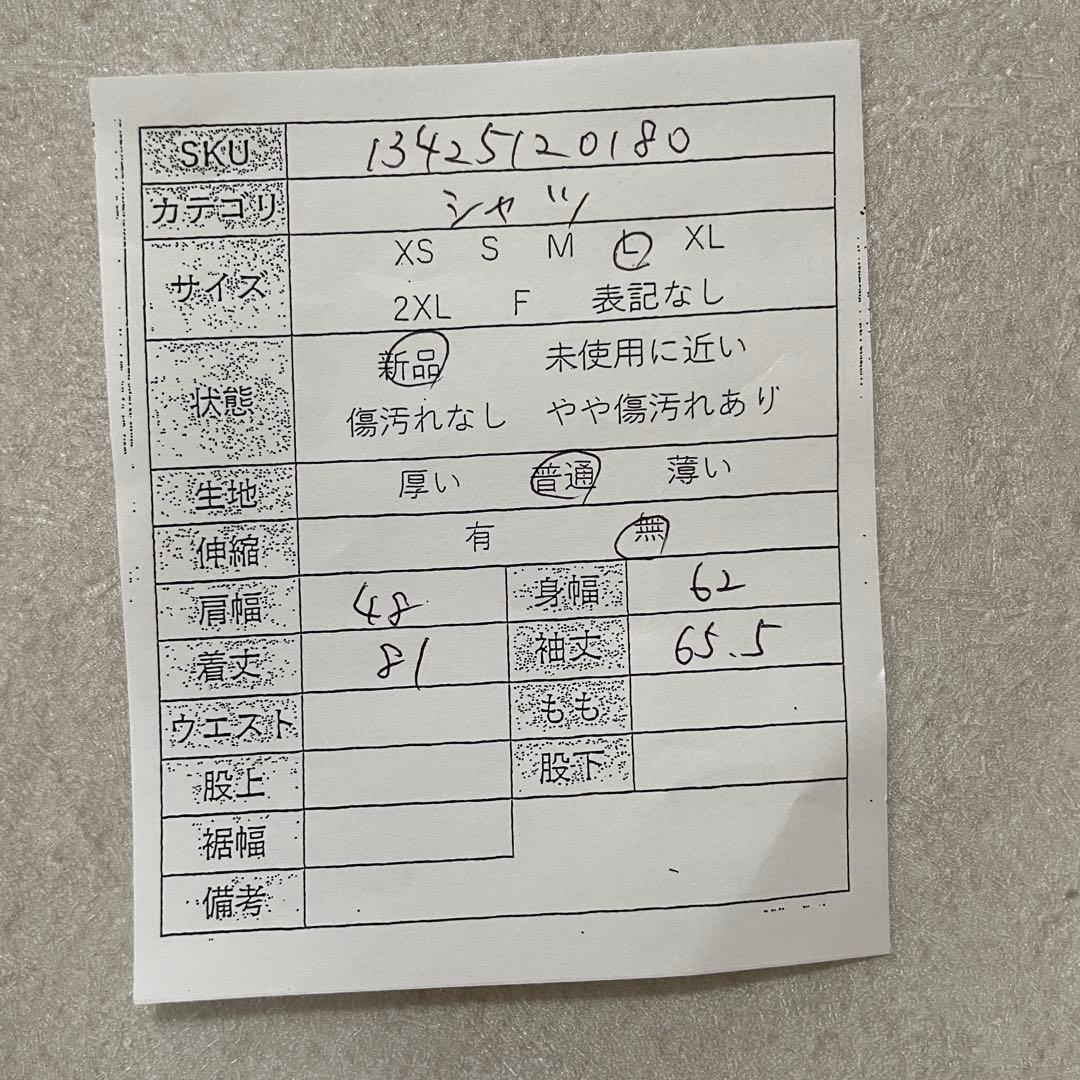 SKU 13425120180
カテゴリ シャツ
サイズ XS S M L XL
2XL F 表記なし
状態 新品 未使用に近い
傷汚れなし やや傷汚れあり
生地 厚い 普通 薄い
伸縮 有 無
肩幅 48 身幅 62
着丈 81 袖丈 65.5
ウエスト もも
股上 股下
裾幅
備考